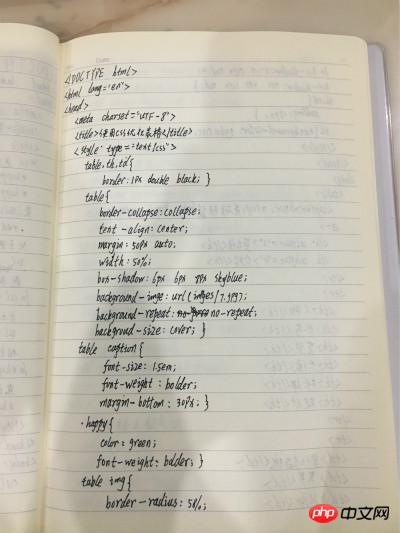 <!DOCTYPE html>
<html lang="en">
<head>
<meta charset="UTF-8">
<title>使用css优化表格</title>
<style type="text/css">
table,th,td{
border:1px double black; }
table{
border-collapse:collapse;
text-align:center;
margin:50px auto;
width:50%;
box-shadow:6px 6px 8px skyblue;
background-imge:url(imges/7.jpg);
background-repeat:no-repeat;
background-size:cover; }
table caption{
font-size:1.5em;
font-weight:bolder;
margin-bottom:30px; }
.happy{
color:green;
font-weight:bolder; }
table img{
border-radius:50%;
php中文网